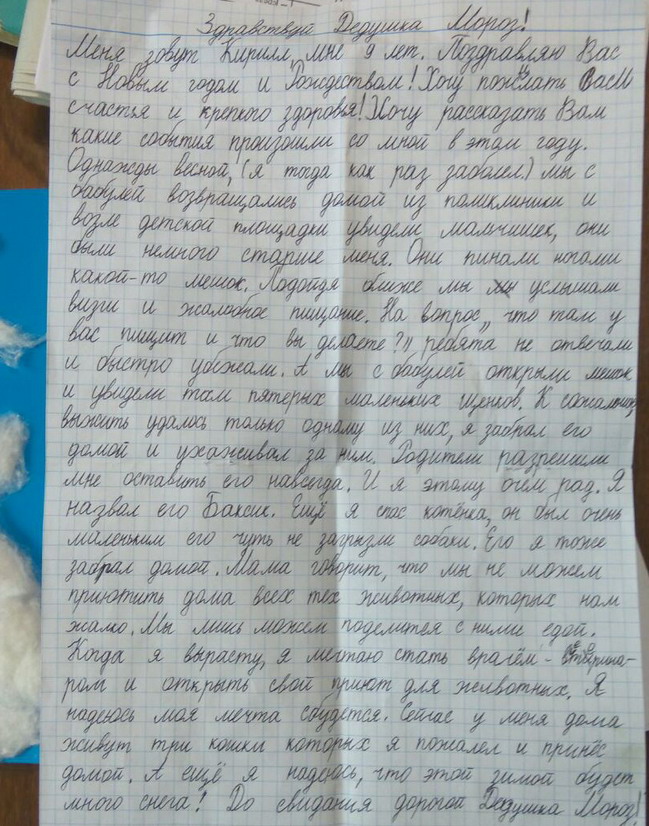 Здравствуй Дедушка Мороз!
Меня зовут Кирилл, мне 9 лет. Поздравляю Вас
с Новым годом и Рождеством! Хочу пожелать Вам
счастья и крепкого здоровья! Хочу рассказать Вам
какие события произошли со мной в этом году.
Однажды весной, (я тогда как раз заболел) мы с
бабулей возвращались домой из поликлиники и
возле детской площадки увидели мальчишек, они
были немного старше меня. Они пинали ногами
какой-то мешок. Подойдя ближе мы услышали
визги и жалобное пищание. На вопрос „что там у
вас пищит и что вы делаете?" ребята не отвечали
и быстро убежали. А мы с бабулей открыли мешок
и увидели там пятерых маленьких щенков. К сожалению
выжить удалось только одному из них, я забрал его
домой и ухаживал за ним. Родители разрешили
мне оставить его навсегда. И я этому очень рад. Я
назвал его Баксик. Ещё я спас котёнка, он был очень
маленьким его чуть не загрызли собаки. Его я тоже
забрал домой. Мама говорит, что мы не можем
приютить дома всех тех животных, которых нам
жалко. Мы лишь можем поделится с ними едой.
Когда я вырасту, я мечтаю стать врачём - ветерина-
ром и открыть свой приют для животных. Я
надеюсь моя мечта сбудется. Сейчас у меня дома
живут три кошки которых я пожалел и принёс
домой. А ещё я надеюсь, что этой зимой будет
много снега! До свидания дорогой Дедушка Мороз!